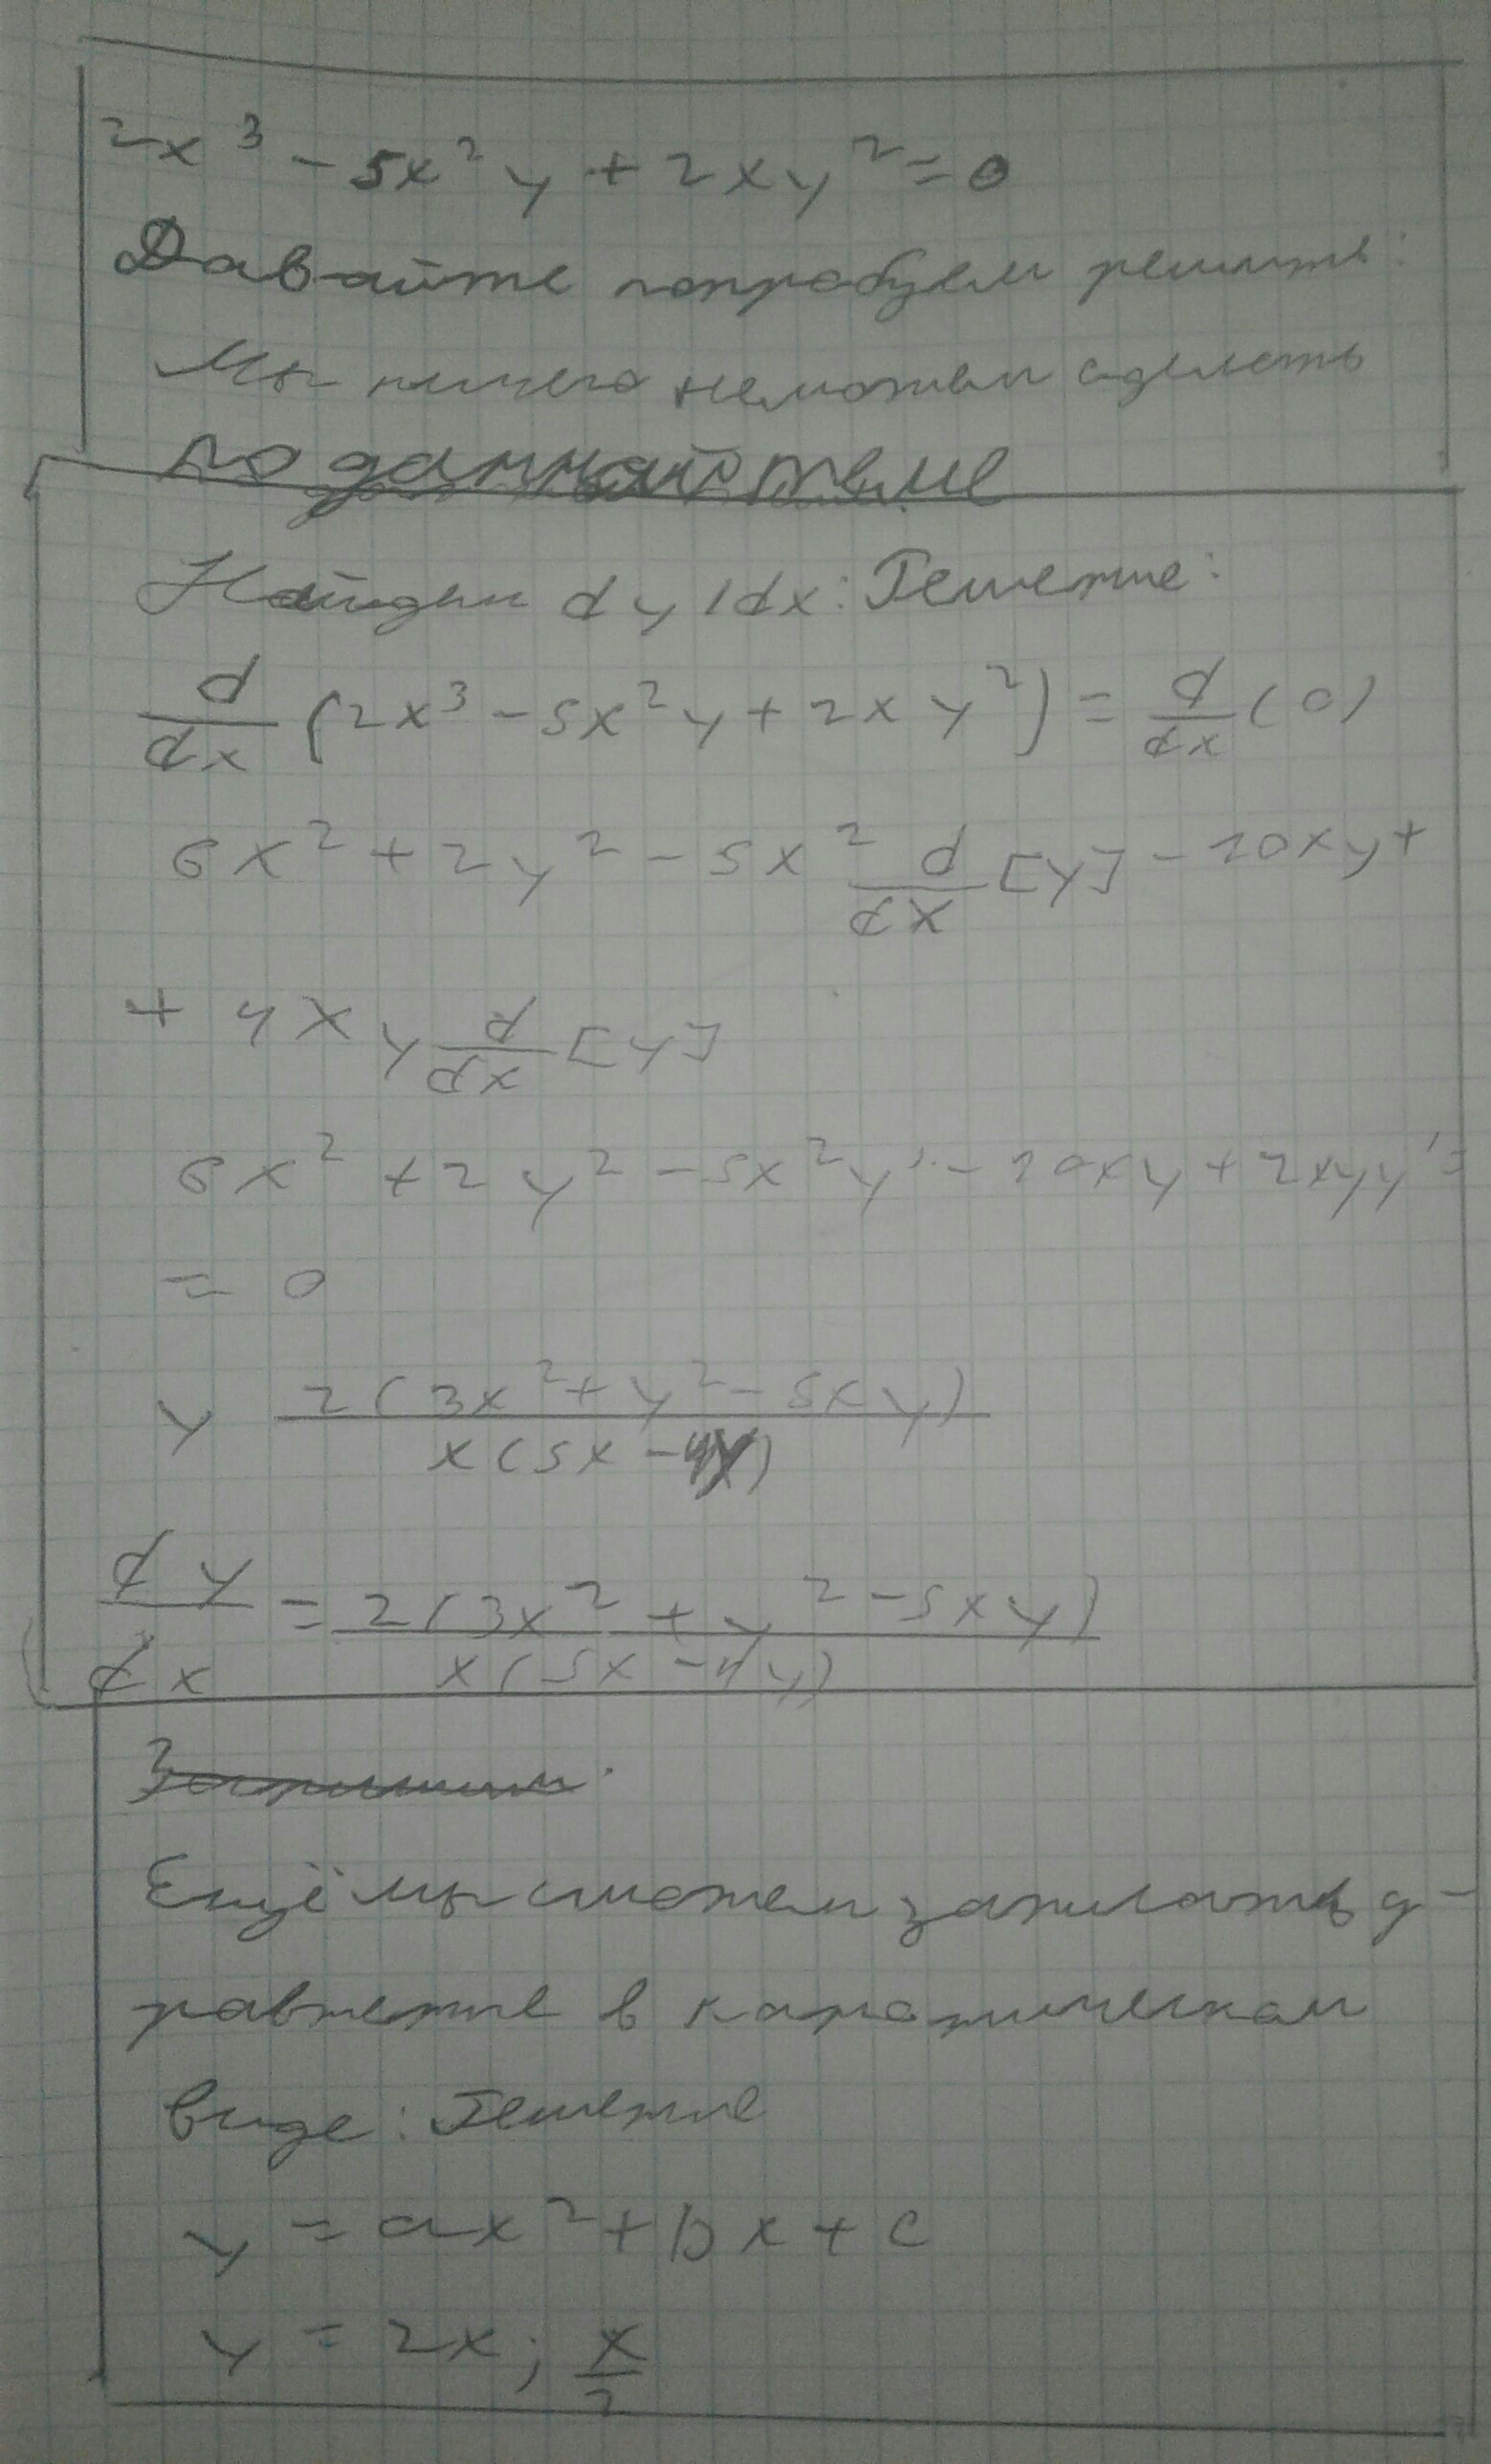 2x³ - 5x²y + 2xy² = 0
Давайте попробуем решить:
Мы ничего не можем сделать
по данной теме
Найдём dy/dx: Решение:
d/dx (2x³ - 5x²y + 2xy²) = d/dx (0)
6x² + 2y² - 5x² d/dx [y] - 10xy +
+ 4xy d/dx [y]
6x² + 2y² - 5x²y' - 10xy + 2xyy' =
= 0
y 2(3x² + y² - 5xy) / x(5x - 4y)
dy/dx = 2(3x² + y² - 5xy) / x(5x - 4y)
Запишим:
Ещё мы сможем записать у-
равнение в каноническом
виде: Решение
y = ax² + bx + c
y = 2x; x/2